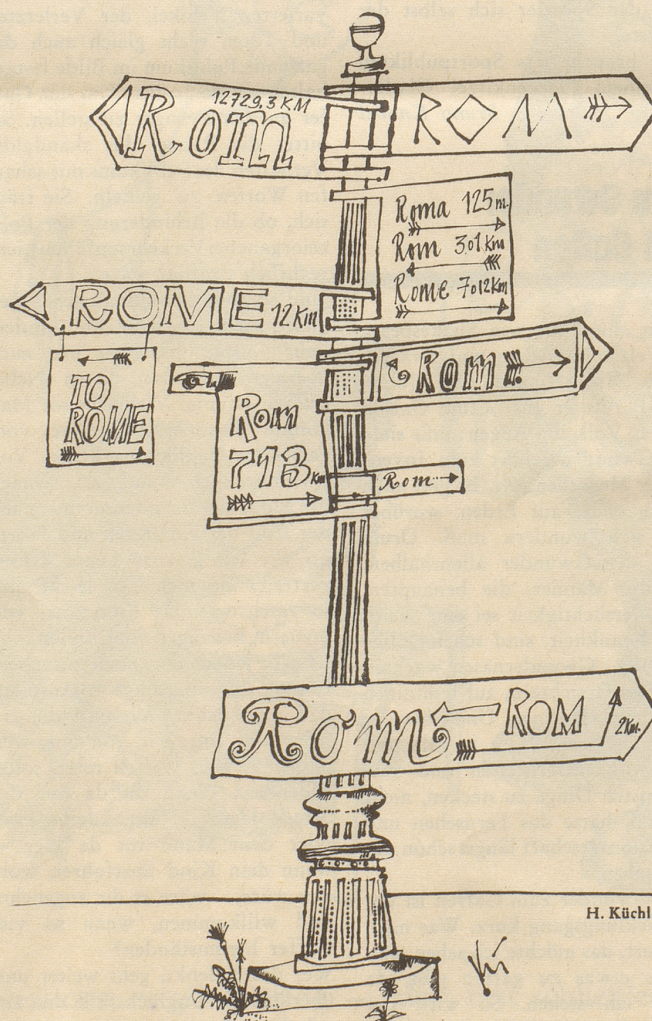 12729,3 KM
Rom
ROM
Roma 125 m
Rom 3.01 Km
Rome 7012 Km
ROME 12 Km
Rom
TO
ROME
Rom
713 Km
Rom
Rom
ROM
2 Km.
H. Küchl
Kü